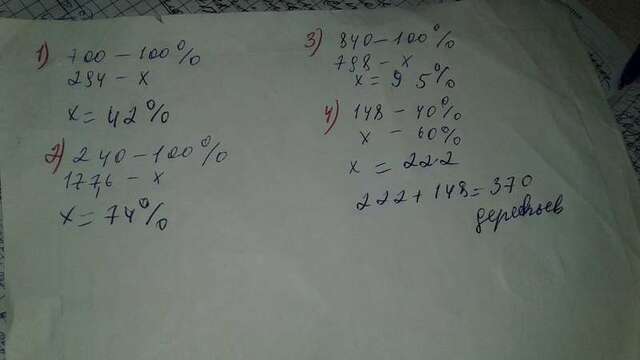 1) 700 – 100%
294 – x
x = 42%
2) 240 – 100%
177,6 – x
x = 74%
3) 840 – 100%
798 – x
x = 95%
4) 148 – 40%
x – 60%
x = 222
222 + 148 = 370
деревьев